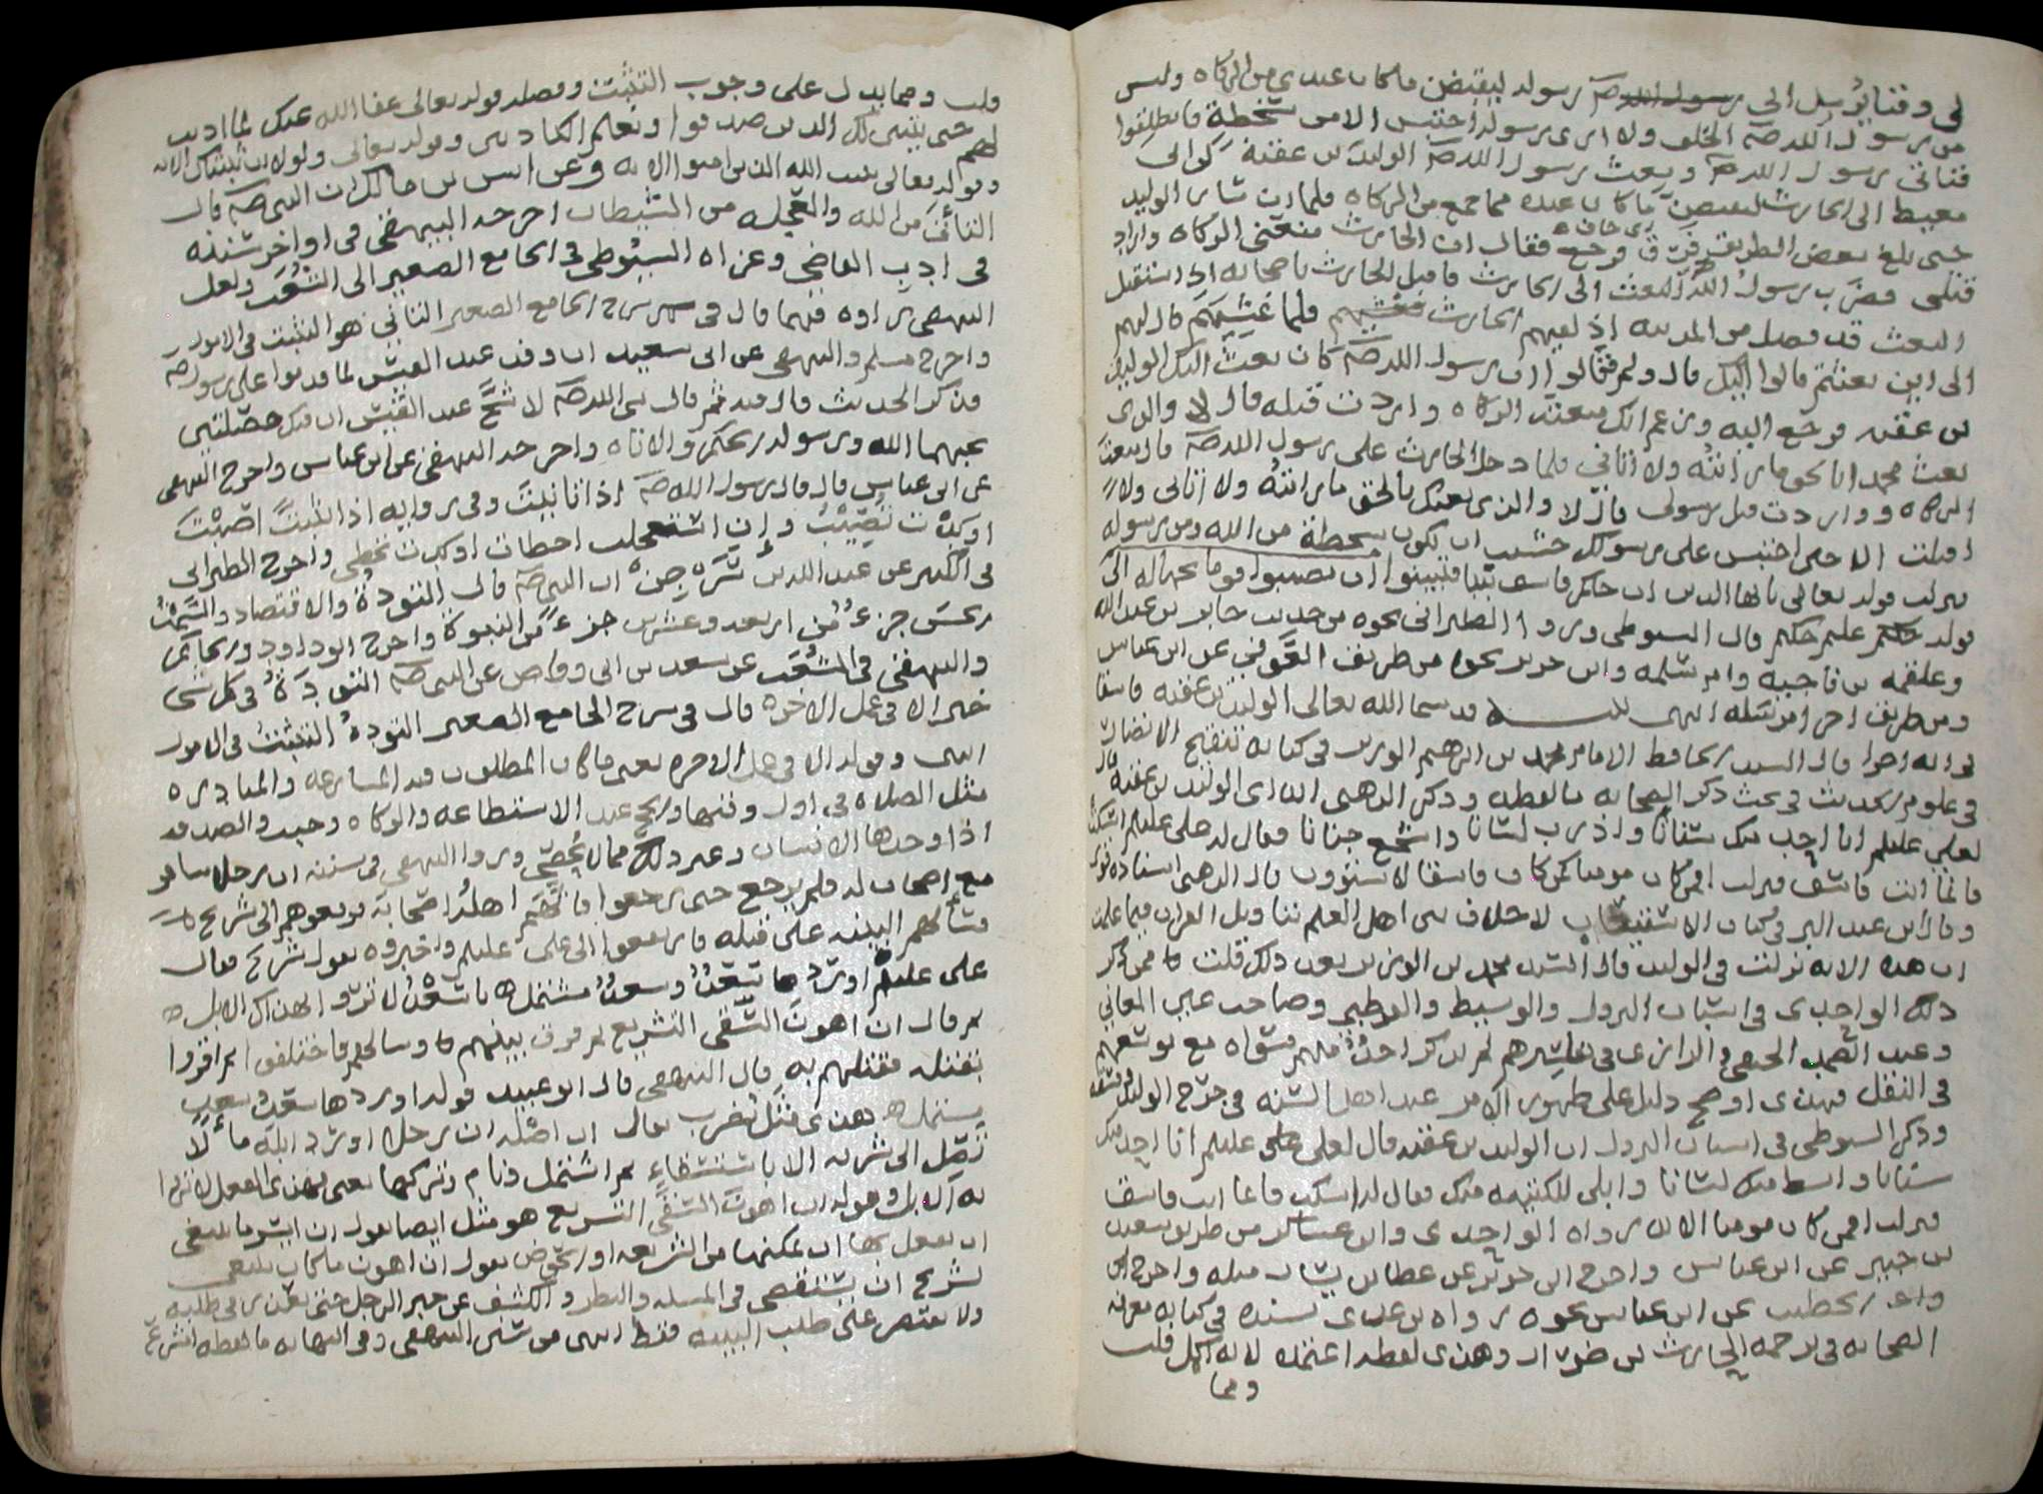 لي وقتا يرسل الي رسول الله صلم رسوله ليقبض ما كان عندي من الزكاه وليس
من رسول الله صلم الخلف ولا ارى رسوله احتبس الا من سخطة فانطلقوا
فناتي رسول الله صلم وبعث رسول الله صلم الوليد بن عقبة بن ابي
معيط الى الحارث ليقبض ما كان عنده مما جمع من الزكاه فلما ان سار الوليد
حتى بلغ بعض الطريق فرق اي خاف فرجع فقال ان الحارث منعني الزكاه واراد
قتلي فضرب رسول الله البعث الى الحارث فاقبل الحارث باصحابه اذ استقبل
البعث قد فصل من المدينه اذ لقيهم الحارث فلما غشيهم قال لهم
الى اين بعثتم قالوا اليك قال ولم فقالوا ان رسول الله صلم كان بعث اليك الوليد
بن عقبه فرجع اليه وزعم انك منعت الزكاه واردت قتله قال لا والذي
بعث محمدا بالحق ما رايته ولا اتاني فلما دخل الحارث على رسول الله صلم قال منعت
الزكاه واردت قتل رسولي قال لا والذي بعثك بالحق ما رايته ولا اتاني ولا
اقبلت الا حين احتبس على رسولك خشيت ان يكون سخطة من الله ومن رسوله
نزلت قوله تعالى يا ايها الذين ان جاكم فاسق بنبا فتبينوا ان تصيبوا قوما بجهاله الى
قوله عليم حكيم قال السيوطي وروا الطبراني نحوه من حديث جابر بن عبدالله
وعلقمه بن ناجيه وام سلمه وابن جرير نحوه من طريق العوفي عن ابن عباس
ومن طريق اخر مرسله انتهى قلت قد سما الله تعالى الوليد بن عقبه فاسقا
في ايه اخرا قال السيد الحافظ الامام محمد بن ابرهيم الوزير في كتابه تنقيح الانظار
في علوم الحديث في بحث ذكر الصحابه ما لفظه وذكر الذهبي ان الوليد بن عقبه قال
لعلي عليلم انا احد منك سنانا واذرب لسانا واشجع جنانا فقال له علي عليلم اسكت
فانما انت فاسق فنزلت افمن كان مومنا كمن كان فاسقا لا يستوون قال الذهبي اسناده قوي
وقال ابن عبد البر في كتاب الاستيعاب لا خلاف بين اهل العلم بتاويل القران فيما علمت
ان هذه الايه نزلت في الوليد قال السيد محمد بن الوزير بعد ذلك قلت فممن ذكر
ذلك الواحدي في اسباب النزول والوسيط والقرطبي وصاحب عين المعاني
وعبد الصمد الحنفي والرازي في تفاسيرهم لم يذكر احد منهم سواه مع توسعهم
في النقل فهذي اوضح دليل على ظهور الامر عند اهل السنه في جرح الوليد
وذكر السيوطي في اسباب النزول ان الوليد بن عقبه قال لعلي عليلم انا احد منك
سنانا وابسط منك لسانا واملى للكتيبه منك فقال له اسكت فانما انت فاسق
فنزلت افمن كان مومنا الايه رواه الواحدي وابن عساكر من طريق سعيد
بن جبير عن ابن عباس واخرج ابن جرير عن عطا بن يسار مثله واخرج ابن
الخطيب عن ابن عباس نحوه رواه بن عدي بسنده في كتابه معرفة
الصحابه في ترجمه الحارث بن ضرار وهذي لفظه اعتمده لانه اكمل قلت
ومما
قلت ومما يدل على وجوب التثبت وفضله قوله تعالى عفا الله عنك لما اذنت
لهم حتى يتبين لك الذين صدقوا وتعلم الكاذبين وقوله تعالى ولولا ان ثبتناك الايه
وقوله تعالى يثبت الله الذين امنوا الايه وعن انس بن مالك ان النبي صلم قال
التاني من الله والعجله من الشيطان اخرجه البيهقي في اواخر سننه
في ادب القاضي وعزاه السيوطي في الجامع الصغير الى الشعب ولعل
البيهقي رواه فيهما قال في شرح الجامع الصغير التاني هو التثبت في الامور
واخرج مسلم والبيهقي عن ابي سعيد ان وفد عبد القيس لما قدموا على رسول صلم
فذكر الحديث قال فيه ثم قال نبي الله صلم لاشج عبد القيس ان فيك خصلتين
يحبهما الله ورسوله الحلم والاناه واخرجه البيهقي عن ابن عباس واخرج البيهقي
عن ابن عباس قال قال رسول الله صلم اذا تانيت وفي روايه اذا تثبت اصبت
او كدت تصيب وان استعجلت اخطات او كدت تخطي واخرج الطبراني
في الكبير عن عبد الله بن سرجس ان النبي صلم قال التؤدة والاقتصاد والسمت
الحسن جزء من اربعه وعشرين جزء من النبوة واخرج ابو داود والحاكم
والبيهقي في الشعب عن سعد بن ابي وقاص عن النبي صلم التودة في كل شي
خير الا في عمل الاخره قال في شرح الجامع الصغير التوده التثبت في الامور
انتهى وقوله الا في عمل الاخره يعني ما كان المطلوب فيه المسارعه والمبادره
مثل الصلاه في اول وقتها والحج عند الاستطاعه والزكاه وحيث والصدقه
اذا وجدها الانسان وغير ذلك مما لا يحصى وروا البيهقي في سننه ان رجلا سافر
مع اصحاب له فلم يرجع حين رجعوا فاتهم اهله اصحابه فرفعوهم الى شريح
فسالهم البينه على قتله فارتفعوا الى علي عليلم واخبروه بقول شريح فقال
علي عليلم اوردها سعد وسعد مشتمل يا سعد لا تروى بهذاك الابل
ثم قال ان اهون السقي التشريع ثم فرق بينهم وسالهم فاختلفوا ثم اقروا
بقتله فقتلهم به قال البيهقي قال ابو عبيد قوله اوردها سعد وسعد
مشتمل هذي مثل يضرب يقال ان اصله ان رجلا اورد ابله ماء لا
تصل الى شربه الا باستسقاء ثم اشتمل ونام وتركها يعني فهذي الفعل لا تروا
به الابل وقوله ان اهون السقي التشريع هو مثل ايضا يقول ان ايسر ما ينبغي
ان يفعل بها ان يمكنها من الشريعه او الحوض يقول ان اهون ما كان ينبغي
لشريح ان يستقصي في المسله والنظر والكشف عن خبر الرجل حتى يعذر في طلبه
ولا يقتصر على طلب البينه فقط انتهى من سنن البيهقي وفي النهايه ما لفظه